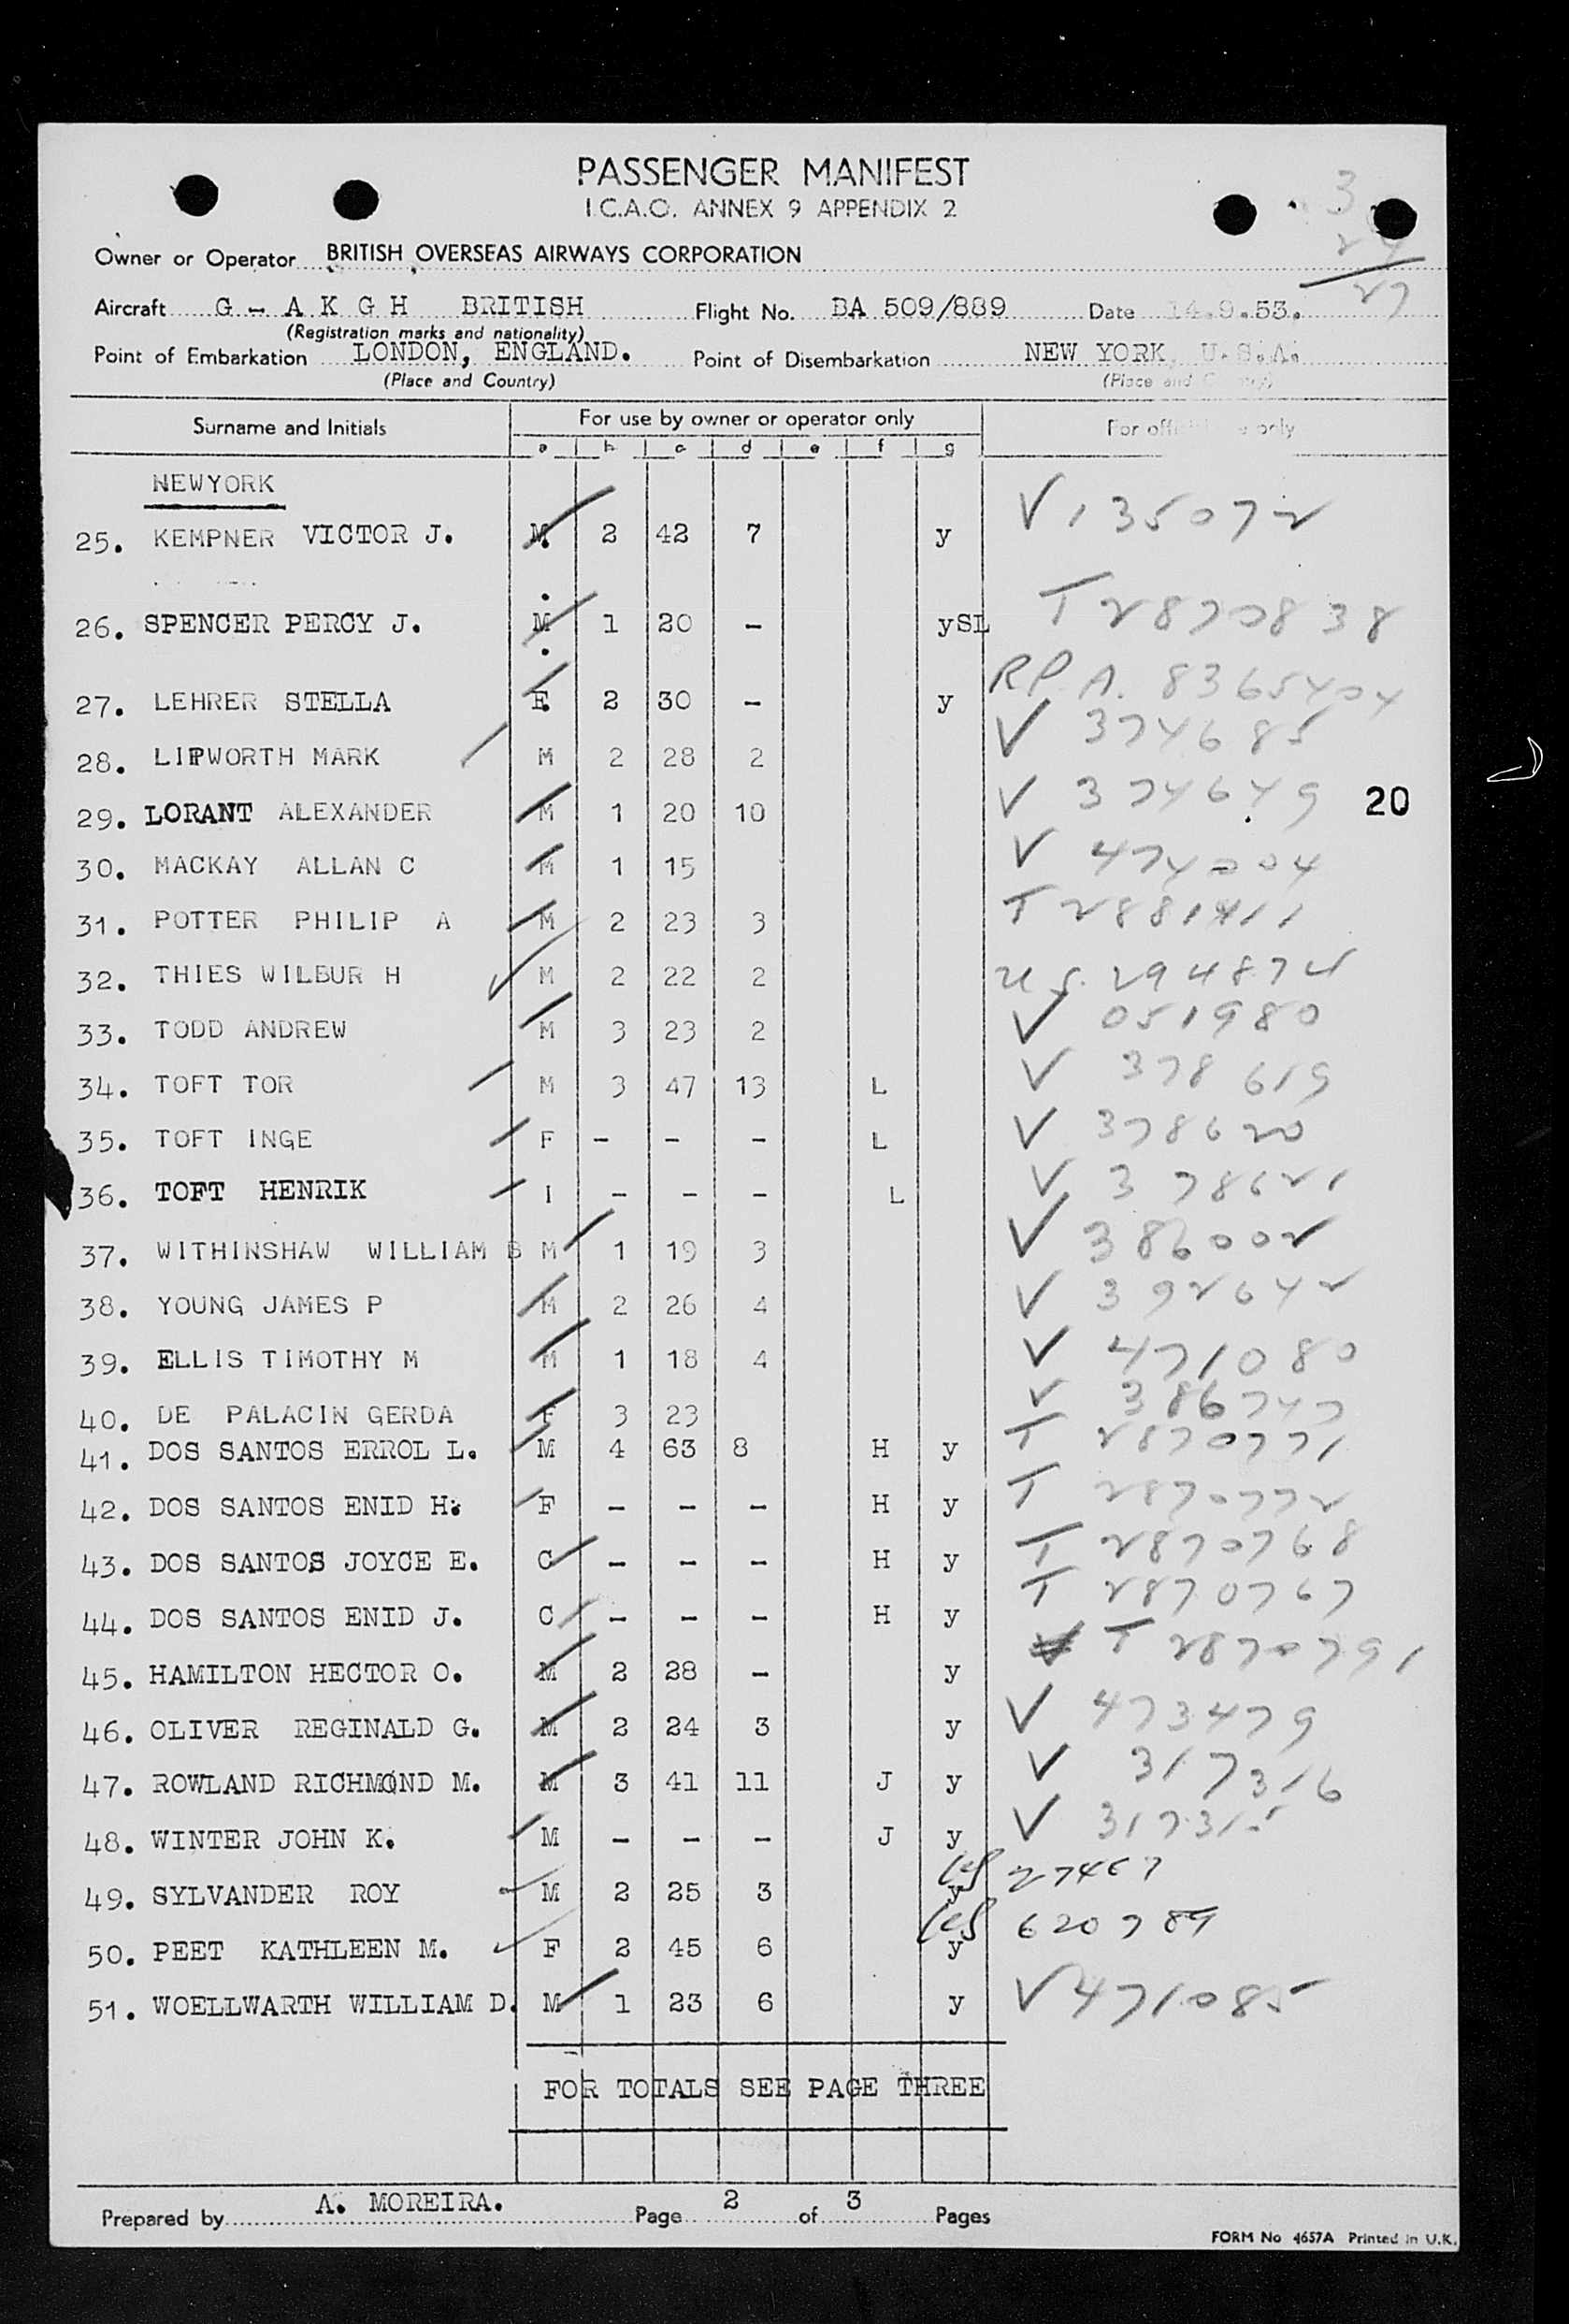 PASSENGER MANIFEST
I.C.A.O. ANNEX 9 APPENDIX 2
3
24
27
Owner or Operator BRITISH OVERSEAS AIRWAYS CORPORATION
Aircraft G - A K G H BRITISH Flight No. BA 509/889 Date 14.9.53.
(Registration marks and nationality)
Point of Embarkation LONDON, ENGLAND. Point of Disembarkation NEW YORK, U.S.A.
(Place and Country) (Place and Country)
Surname and Initials For use by owner or operator only For official use only
a b c d e f g
NEWYORK
25. KEMPNER VICTOR J. M. 2 42 7 y V 135072
26. SPENCER PERCY J. M 1 20 - ySL T 2870838
27. LEHRER STELLA F. 2 30 - y RP. A. 8365404
28. LIPWORTH MARK M 2 28 2 V 374685
29. LORANT ALEXANDER M 1 20 10 V 374649 20
30. MACKAY ALLAN C M 1 15 V 474004
31. POTTER PHILIP A M 2 23 3 T 2881411
32. THIES WILBUR H M 2 22 2 U.S. 294874
33. TODD ANDREW M 3 23 2 V 051980
34. TOFT TOR M 3 47 13 L V 378619
35. TOFT INGE F - - - L V 378620
36. TOFT HENRIK I - - - L V 378621
37. WITHINSHAW WILLIAM B M 1 19 3 V 386002
38. YOUNG JAMES P M 2 26 4 V 392642
39. ELLIS TIMOTHY M M 1 18 4 V 471080
40. DE PALACIN GERDA F 3 23 V 386747
41. DOS SANTOS ERROL L. M 4 63 8 H y T 2870771
42. DOS SANTOS ENID H. F - - - H y T 2870772
43. DOS SANTOS JOYCE E. C - - - H y T 2870768
44. DOS SANTOS ENID J. C - - - H y T 2870767
45. HAMILTON HECTOR O. M 2 28 - y T 2870791
46. OLIVER REGINALD G. M 2 24 3 y V 473479
47. ROWLAND RICHMOND M. M 3 41 11 J y V 317316
48. WINTER JOHN K. M - - - J y V 317315
49. SYLVANDER ROY M 2 25 3 y US 27467
50. PEET KATHLEEN M. F 2 45 6 y US 620789
51. WOELLWARTH WILLIAM D. M 1 23 6 y V 471085
FOR TOTALS SEE PAGE THREE
Prepared by A. MOREIRA. Page 2 of 3 Pages
FORM No 4657A Printed in U.K.